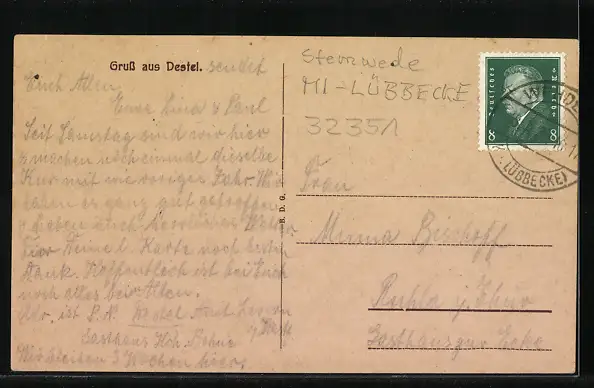 Gruß aus Destel. sendet
Euch Allen
Eure Lina & Paul
Seit Samstag sind wir hier
& machen noch einmal dieselbe
Kur mit wie voriger Jahr. Wir
haben es ganz gut getroffen
& haben auch herrliches Wetter
Karte noch besten
Dank. Hoffentlich ist bei Euch
noch alles beim Alten.
Gasthaus Hch.
Wir bleiben 3 Wochen hier.
B. D. G.
Sternwede
MI-LÜBBECKE
32351
Deutsches Reich
8 8
(LÜBBECKE)
Frau
Minna Bischoff
Ruhla i/Thür
Gasthaus zur Ecke